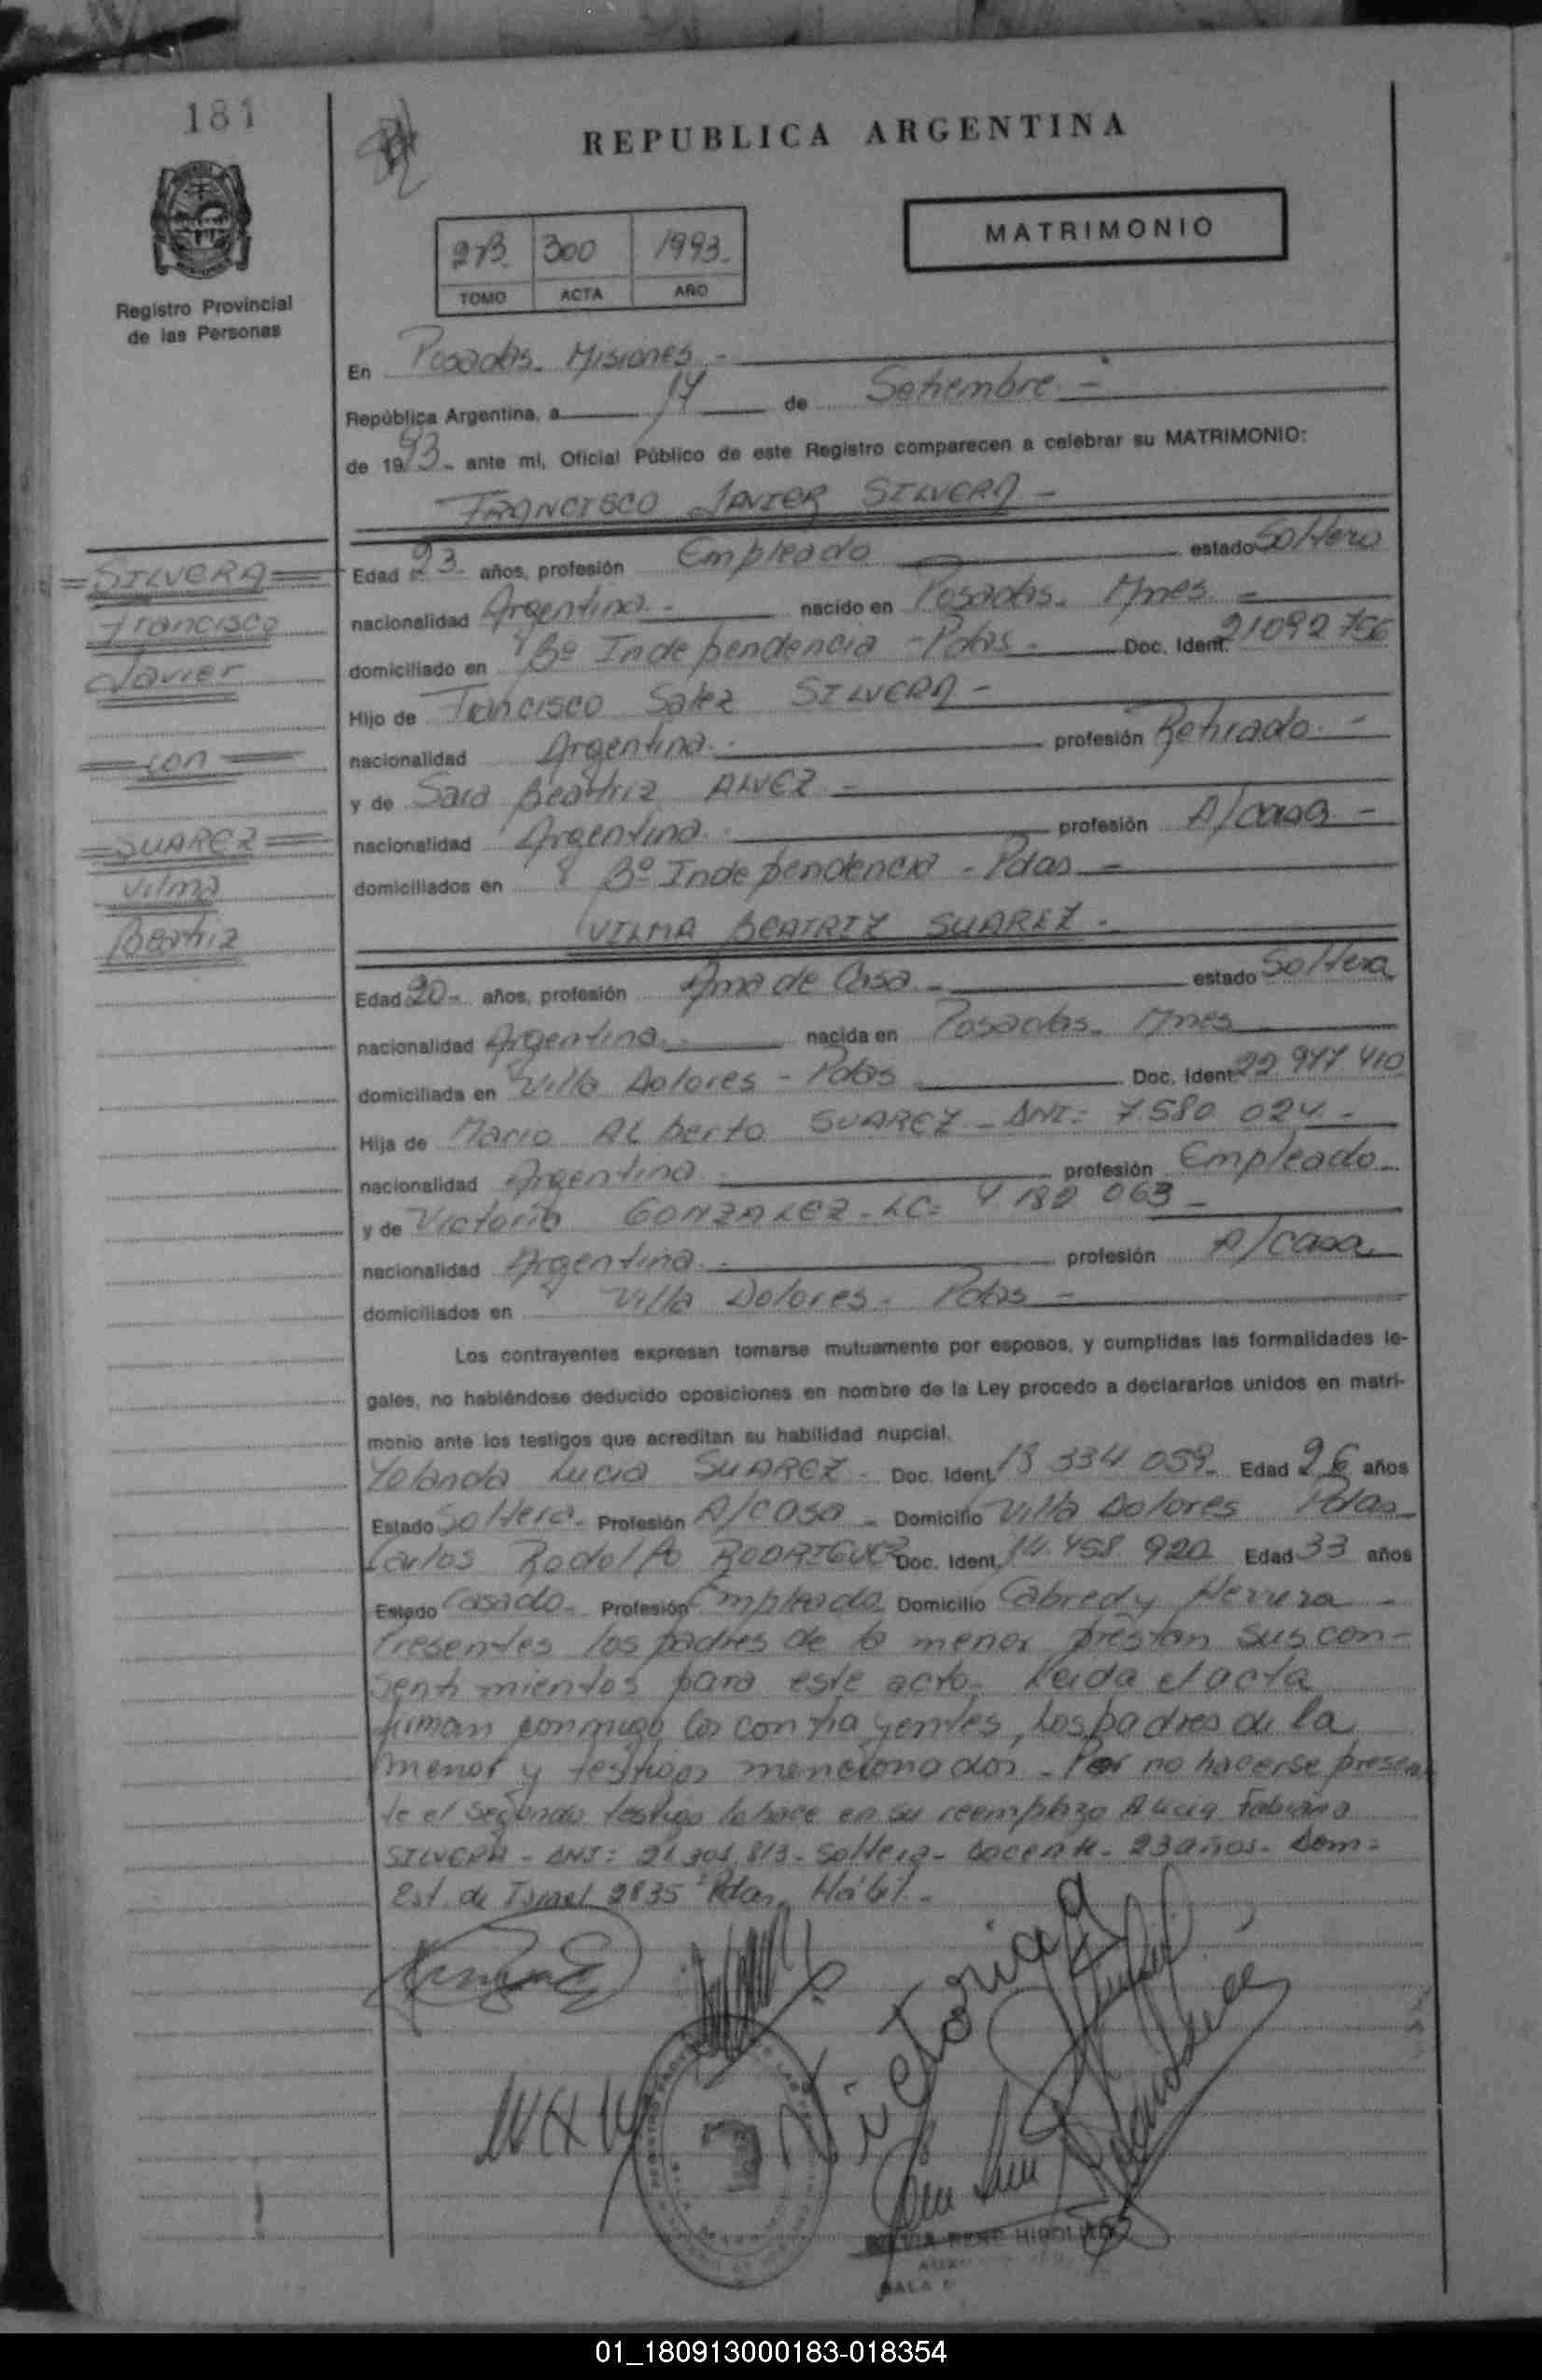 181
REPUBLICA ARGENTINA
MATRIMONIO
273 300 1993
TOMO ACTA AÑO
Registro Provincial
de las Personas
En Posadas. Misiones.-
República Argentina, a 14 de Setiembre.-
de 1993.- ante mi, Oficial Público de este Registro comparecen a celebrar su MATRIMONIO:
FRANCISCO JAVIER SILVERA-
SILVERA
Francisco
Javier
con
SUAREZ
Vilma
Beatriz
Edad 23- años, profesión Empleado estado Soltero
nacionalidad Argentina.- nacido en Posadas. Mnes.-
domiciliado en Bº Independencia -Pdas- Doc. Ident. 21092756
Hijo de Francisco SILVERA-
nacionalidad Argentina.- profesión Retirado.-
y de Sara Beatriz ALVEZ.-
nacionalidad Argentina.- profesión A/casa.-
domiciliados en Bº Independencia - Pdas-
VILMA BEATRIZ SUAREZ.-
Edad 20- años, profesión Ama de Casa.- estado Soltera
nacionalidad Argentina.- nacida en Posadas. Mnes
domiciliada en Villa Dolores - Pdas Doc. Ident. 22 947 410
Hija de Mario Alberto SUAREZ - DNI: 7.580 024.-
nacionalidad Argentina.- profesión Empleado-
y de Victoria GONZALEZ - LC: 4.182 063-
nacionalidad Argentina.- profesión A/casa
domiciliados en Villa Dolores. Pdas-
Los contrayentes expresan tomarse mutuamente por esposos, y cumplidas las formalidades le-
gales, no habiéndose deducido oposiciones en nombre de la Ley procedo a declararlos unidos en matri-
monio ante los testigos que acreditan su habilidad nupcial.
Yolanda Lucia SUAREZ- Doc. Ident. 18 334 059- Edad 26 años
Estado Soltera- Profesión A/casa- Domicilio Villa Dolores Pdas-
Carlos Rodolfo RODRIGUEZ Doc. Ident. 14.458 920 Edad 33 años
Estado Casado- Profesión Empleado Domicilio Cabred y Herrera-
Presentes los padres de la menor prestan sus con-
sentimientos para este acto. Leida el acta
firman conmigo los contrayentes, los padres de la
menor y testigos mencionados - Por no hacerse presen
te el segundo testigo lo hace en su reemplazo Alicia Fabiana
SILVERA - DNI: 21 301 813- Soltera- docente- 23 años- Dom:
Est. de Israel 2835 Pdas. Hábil.-
Victoria G
01_180913000183-018354